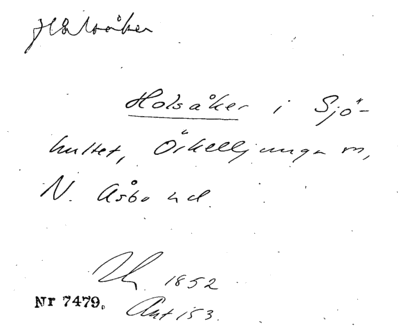 Holsåker
Holsåker i Sjö-
hultet, Örkelljunga sn,
N. Åsbo hd.
1852
Nr 7479. Akt 153.